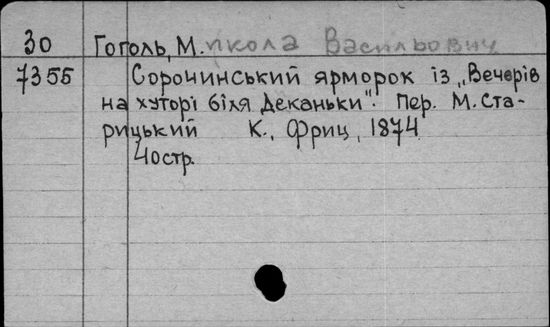 30 Гоголь, М.икола Васильович
7355 Сорочинський ярморок із „Вечерів
на хуторі біля Деканьки". Пер. М. Ста-
рицький К., Фриц, 1874
40стр.